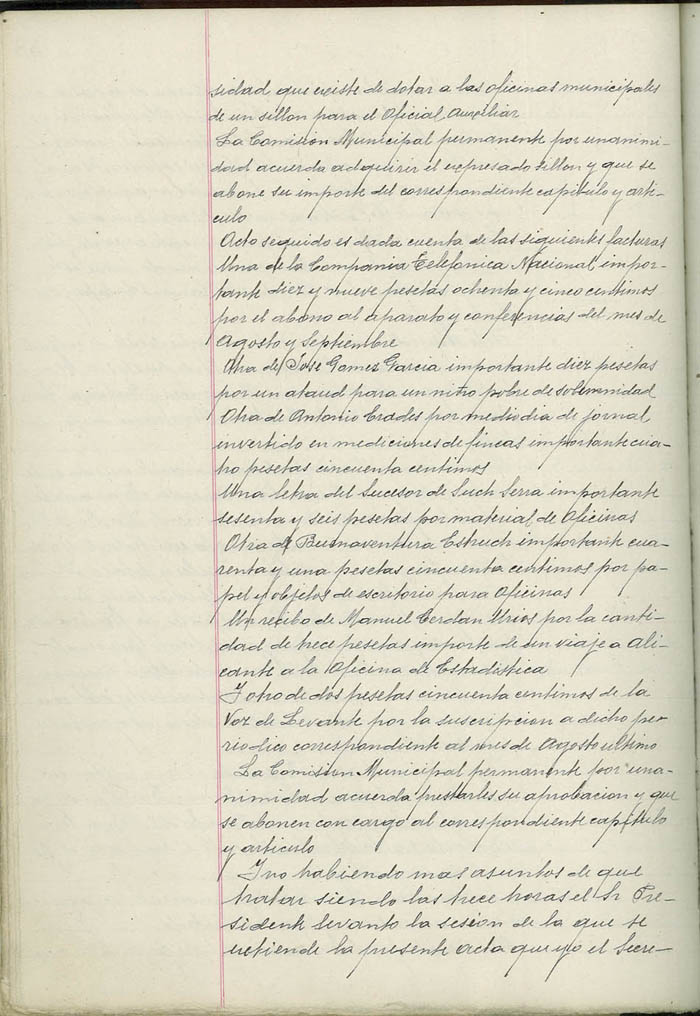 sidad que existe de dotar a las oficinas municipales
de un sillon para el Oficial Auxiliar
La Comision Municipal permanente por unanimi-
dad acuerda adquirir el expresado sillon y que se
abone su importe del correspondiente capitulo y arti-
culo
Acto seguido es dada cuenta de las siguientes facturas
Una de la Compania Telefonica Nacional impor-
tante diez y nueve pesetas ochenta y cinco centimos
por el abono al aparato y conferencias del mes de
Agosto y Septiembre
Otra de Jose Gomez Garcia importante diez pesetas
por un ataud para un niño pobre de solemnidad
Otra de Antonio Erades por medio dia de jornal
invertido en mediciones de fincas importante cua-
tro pesetas cincuenta centimos
Una letra del Sucesor de Such Serra importante
sesenta y seis pesetas por material de Oficinas
Otra de Buenaventura Estruch importante cua-
renta y una pesetas cincuenta centimos por pa-
pel y objetos de escritorio para Oficinas
Un recibo de Manuel Cerdan Urios por la canti-
dad de trece pesetas importe de un viaje a Ali-
cante a la Oficina de Estadistica
I otro de dos pesetas cincuenta centimos de la
Voz de Levante por la suscripcion a dicho per-
riodico correspondiente al mes de Agosto ultimo
La Comision Municipal permanente por una-
nimidad acuerda prestarles su aprobacion y que
se abonen con cargo al correspondiente capitulo
y articulo
I no habiendo mas asuntos de que
tratar siendo las trece horas el Sr Pre-
sidente levanto la sesion de la que se
extiende la presente acta que yo el Secre-